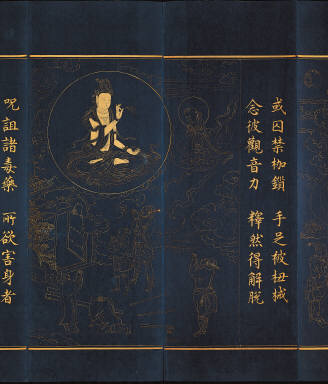 或囚禁枷鎖　手足被杻械
念彼觀音力　釋然得解脫
呪詛諸毒藥　所欲害身者